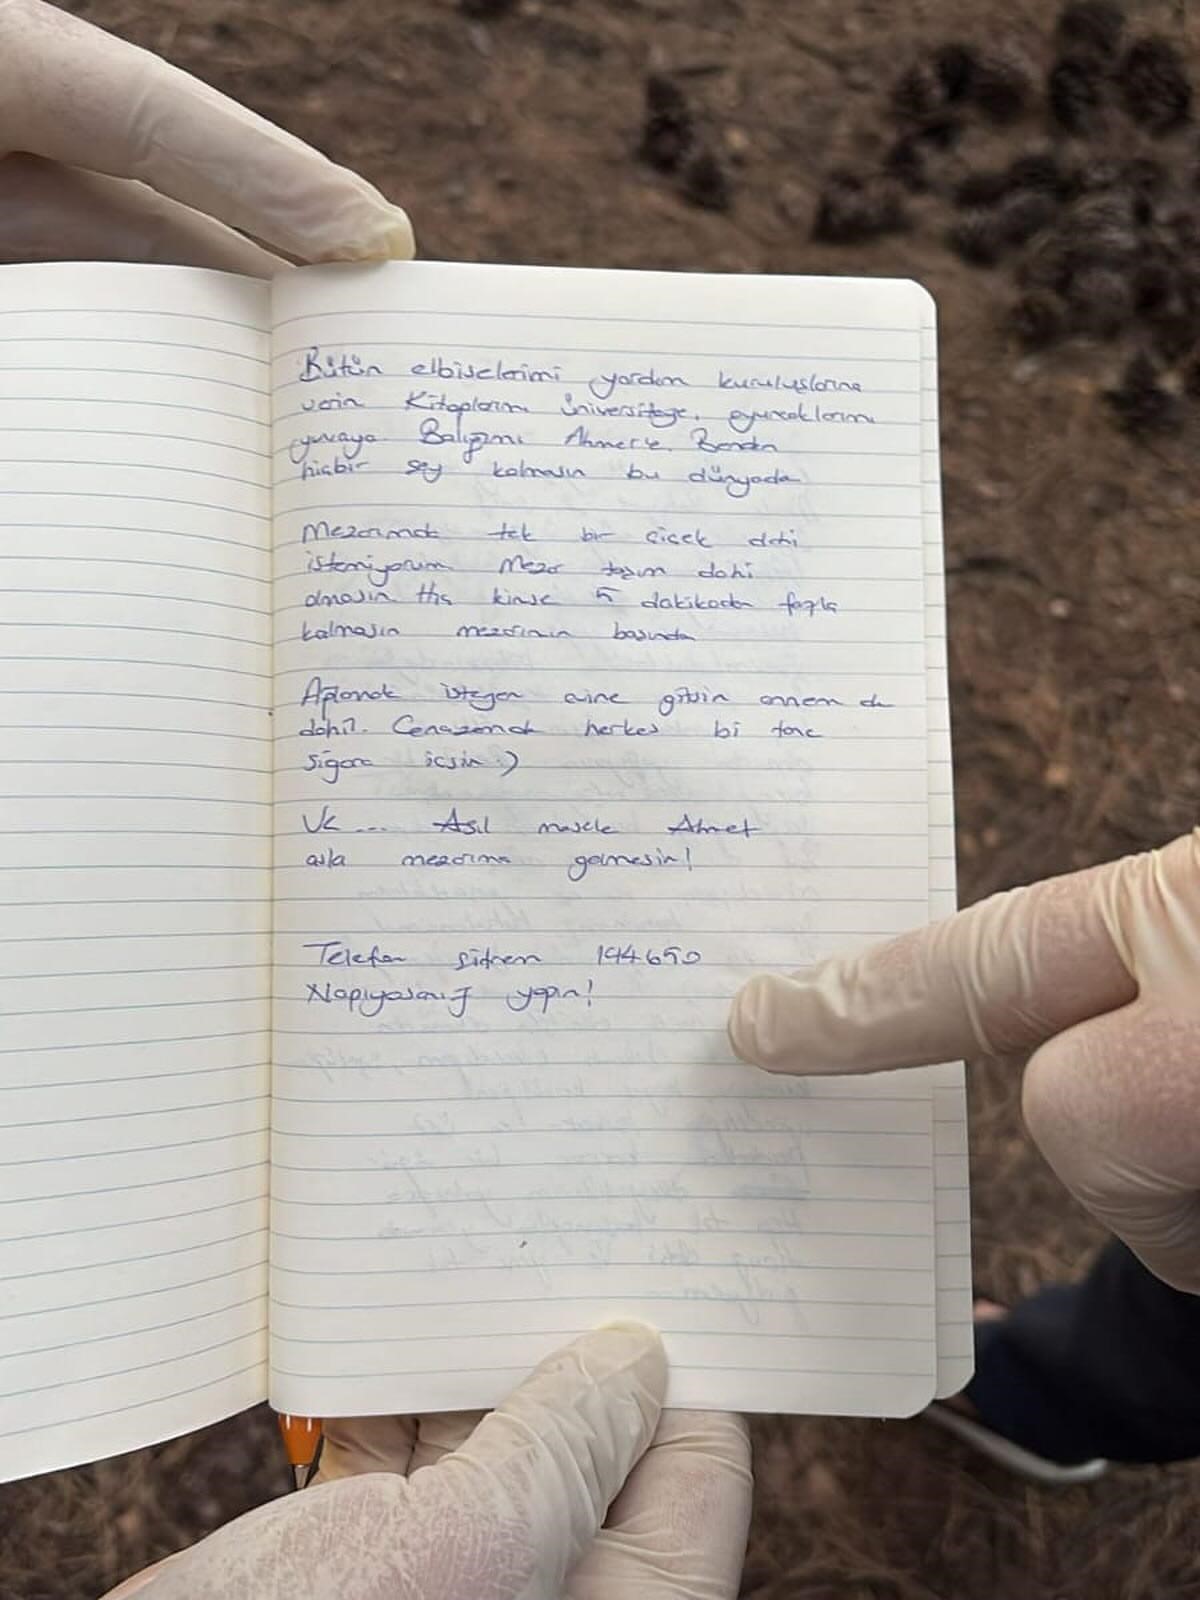 Bütün elbiselerimi yardım kuruluşlarına
verin Kitaplarımı üniversiteye. oyuncaklarımı
yuvaya. Balığımı Ahmet'e. Benden
hiçbir şey kalmasın bu dünyada
Mezarımda tek bir çiçek dahi
istemiyorum Mezar taşım dahi
olmasın Hiç kimse 5 dakikadan fazla
kalmasın mezarımın başında
Ağlamak isteyen evine gitsin annem de
dahil. Cenazemde herkes bi tane
sigara içsin :)
Ve ... Asıl mesele Ahmet
asla mezarıma gelmesin!
Telefon şifrem 194650
Napıyosanız yapın!